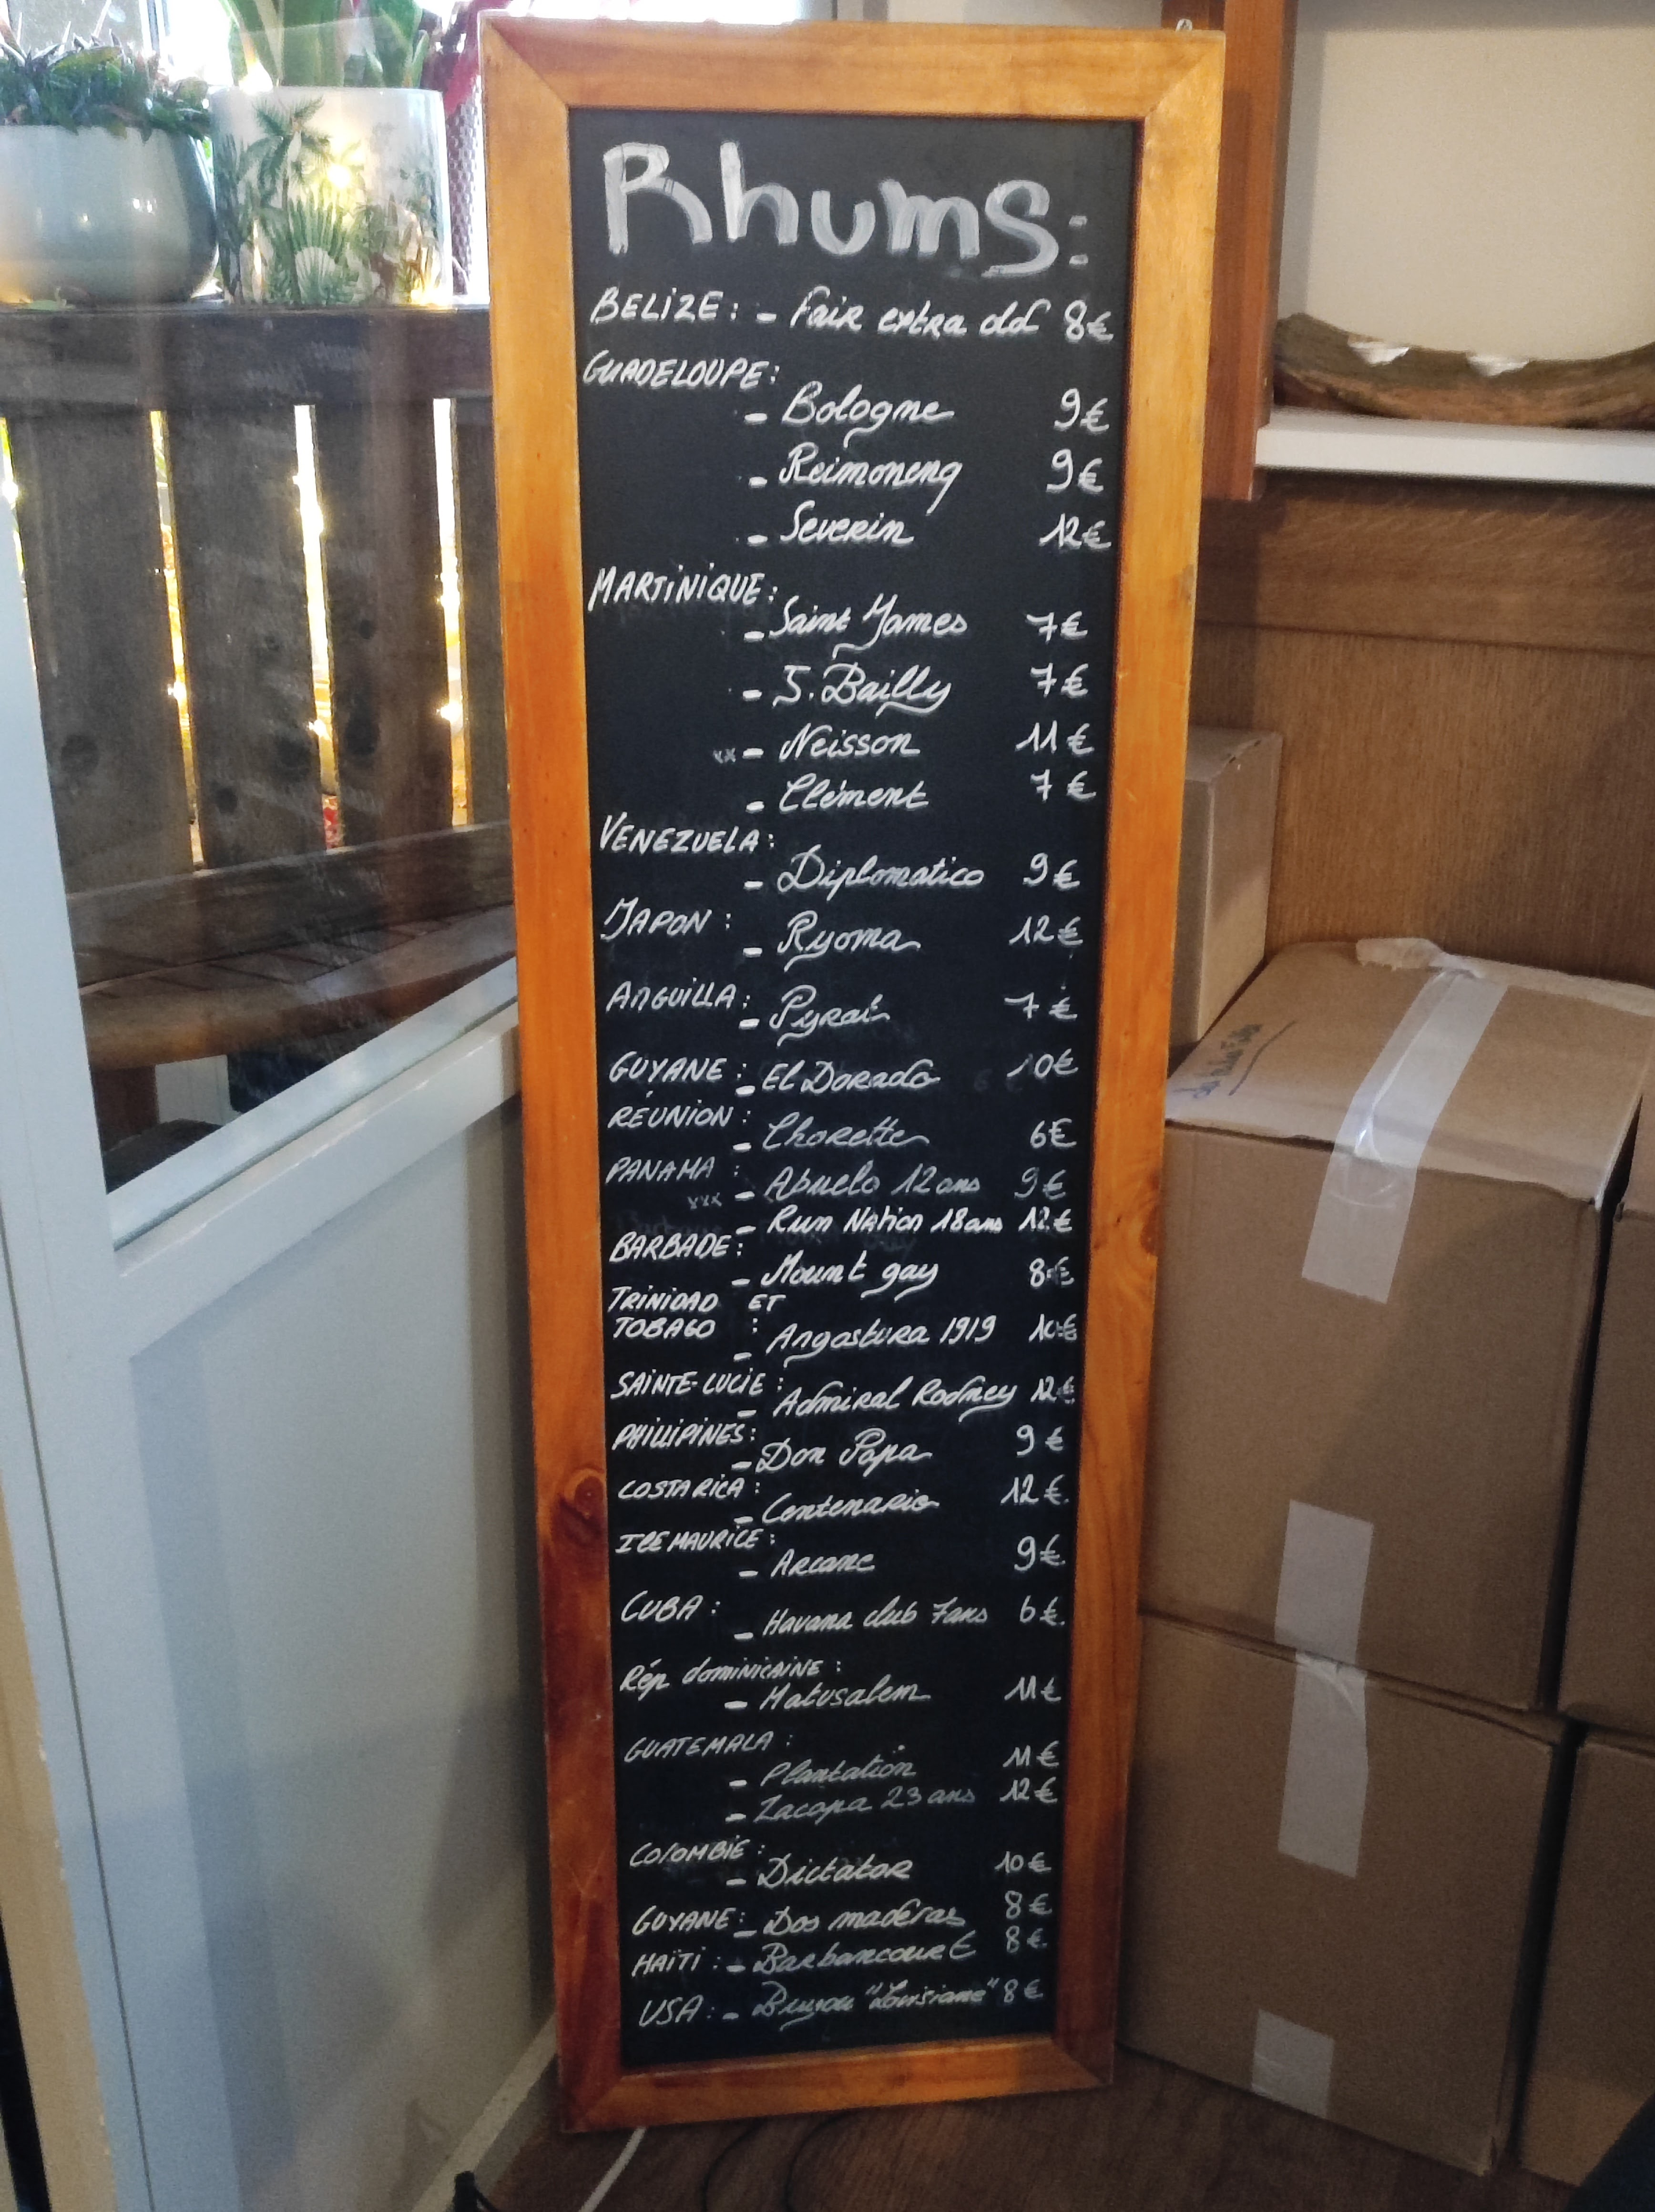 Rhums:
BELIZE: - Fair extra old 8€
GUADELOUPE:
- Bologne 9€
- Reimoneng 9€
- Severin 12€
MARTINIQUE:
- Saint James 7€
- J. Bailly 7€
xx - Neisson 11€
- Clément 7€
VENEZUELA:
- Diplomatico 9€
JAPON :
- Ryoma 12€
ANGUILLA:
- Pyrat 7€
GUYANE : - El Dorado 10€
RÉUNION :
- Chorette 6€
PANAMA :
xxx - Abuelo 12 ans 9€
- Rum Nation 18 ans 12€
BARBADE:
- Mount gay 8€
TRINIDAD ET
TOBAGO :
- Angostura 1919 10€
SAINTE-LUCIE :
- Admiral Rodney 12€
PHILIPINES:
- Don Papa 9€
COSTA RICA :
- Centenario 12€
ILE MAURICE :
- Arcane 9€
CUBA :
- Havana club 7ans 6€
Rép dominicaine :
- Matusalem 11€
GUATEMALA :
- Plantation 11€
- Zacapa 23 ans 12€
COLOMBIE :
- Dictator 10€
GUYANE: - Dos maderas 8€
HAÏTI : - Barbancourt 8€
USA : - "Louisiane" 8€